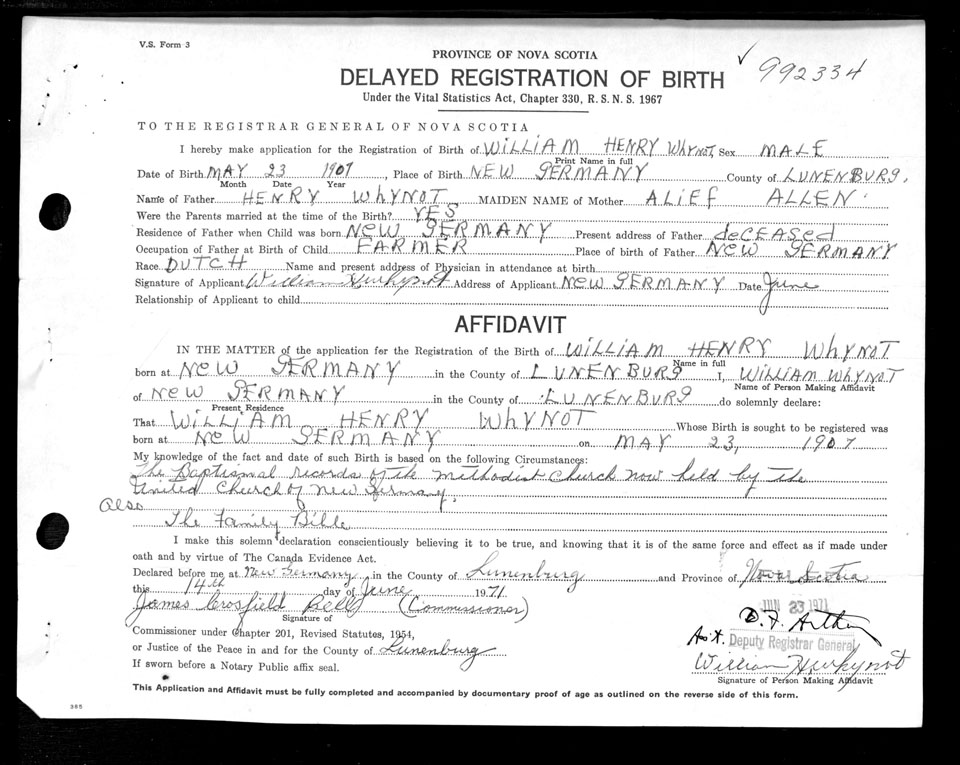 V.S. Form 3
PROVINCE OF NOVA SCOTIA
✓ 992334
DELAYED REGISTRATION OF BIRTH
Under the Vital Statistics Act, Chapter 330, R.S.N.S. 1967
TO THE REGISTRAR GENERAL OF NOVA SCOTIA
I hereby make application for the Registration of Birth of WiLLiAM HENRY WhyNOT, Sex MALE
Print Name in full
Date of Birth MAY 23 1907, Place of Birth NEW GERMANY County of LUNENBURG.
Month Date Year
Name of Father HENRY WhyNOT MAIDEN NAME of Mother ALiEf ALLEN
Were the Parents married at the time of the Birth? YES
Residence of Father when Child was born NEW GERMANY Present address of Father deCEASEd
Occupation of Father at Birth of Child FARMER Place of birth of Father NEW GERMANY
Race DUTCH Name and present address of Physician in attendance at birth
Signature of Applicant William H Whynot Address of Applicant NEW GERMANY Date June
Relationship of Applicant to child
AFFIDAVIT
IN THE MATTER of the application for the Registration of the Birth of WiLLiAM HENRY WhyNOT
Name in full
born at NEW GERMANY in the County of LUNENBURG I, WiLLiAM WhyNOT
Name of Person Making Affidavit
of NEW GERMANY in the County of LUNENBURG do solemnly declare:
Present Residence
That WiLLiAM HENRY WhyNOT Whose Birth is sought to be registered was
born at NEW GERMANY on MAY 23, 1907
My knowledge of the fact and date of such Birth is based on the following Circumstances:
The Baptismal records of the Methodist Church now held by the
United Church of New Germany.
also
The Family Bible
I make this solemn declaration conscientiously believing it to be true, and knowing that it is of the same force and effect as if made under
oath and by virtue of The Canada Evidence Act.
Declared before me at New Germany in the County of Lunenburg and Province of Nova Scotia
this 14th day of June 1971
James Crosfield Bell (Commissioner)
Signature of
JUN 23 1971
Commissioner under Chapter 201, Revised Statutes, 1954,
Asst. Deputy Registrar General
or Justice of the Peace in and for the County of Lunenburg
William H Whynot
If sworn before a Notary Public affix seal.
Signature of Person Making Affidavit
This Application and Affidavit must be fully completed and accompanied by documentary proof of age as outlined on the reverse side of this form.
385